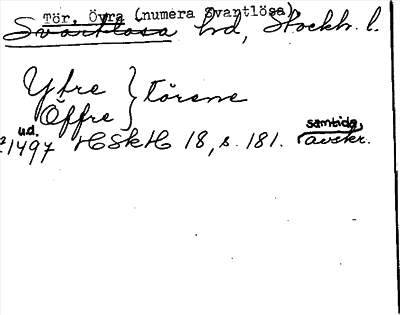 Tör, Övra (numera Svantlösa),
Svartlösa hd, Stockh. l.
Yfre } Töreme
Öffre
u.d.
1497 HSkH 18, s. 181. samtida avskr.